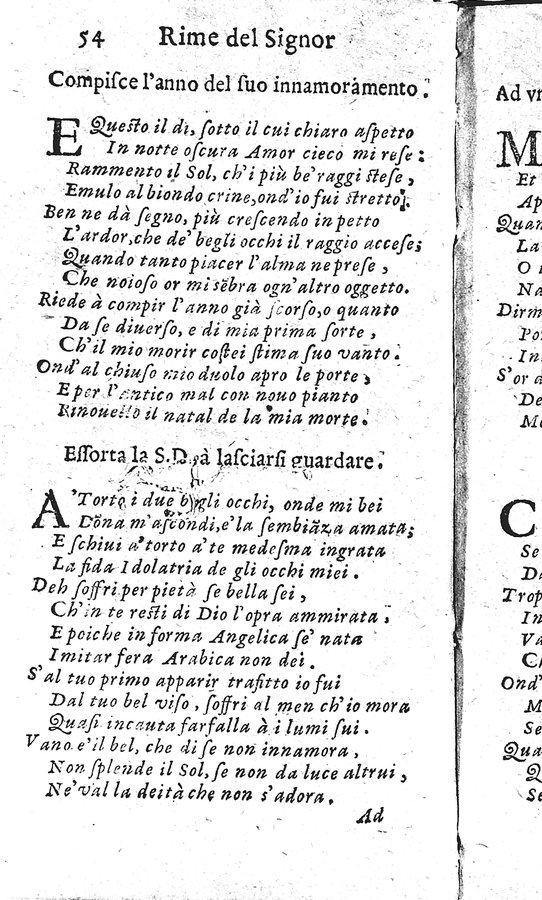 54 Rime del Signor
Compiſce l'anno del ſuo innamorámento.
E Queſto il dì, ſotto il cui chiaro aſpetto
In notte oſcura Amor cieco mi reſe:
Rammento il Sol, ch'i più be' raggi ſteſe,
Emulo al biondo crine, ond'io fui ſtretto.
Ben ne dà ſegno, più creſcendo in petto
L'ardor, che de' begli occhi il raggio acceſe;
Quando tanto piacer l'alma ne preſe,
Che noioſo or mi sẽbra ogn'altro oggetto.
Riede à compir l'anno già ſcorſo, o quanto
Da ſe diuerſo, e di mia prima ſorte,
Ch'il mio morir coſtei ſtima ſuo vanto.
Ond'al chiuſo mio duolo apro le porte,
E per l'antico mal con nouo pianto
Rinouello il natal de la mia morte.
Eſſorta la S.D. à laſciarſi guardare.
A' Torto i due begli occhi, onde mi bei
Dõna m'aſcondi, e'la ſembiãza amata;
E ſchiui a' torto a' te medeſma ingrata
La fida Idolatria de gli occhi miei.
Deh ſoffri per pietà ſe bella ſei,
Ch'in te reſti di Dio l'opra ammirata,
E poiche in forma Angelica ſe' nata
Imitar fera Arabica non dei.
S'al tuo primo apparir trafitto io fui
Dal tuo bel viſo, ſoffri al men ch'io mora
Quaſi incauta farfalla à i lumi ſui.
Vano e'il bel, che di ſe non innamora,
Non ſplende il Sol, ſe non da luce altrui,
Ne' val la deità che non s'adora.
Ad
Ad vn
M
Et
Ap
Quan
La
O
Na
Dirm
Po
In
S'or a
De
Me
C
Se
Da
Trop
In
V
Ch
Ond'
M
Se
Qua
Q
Se